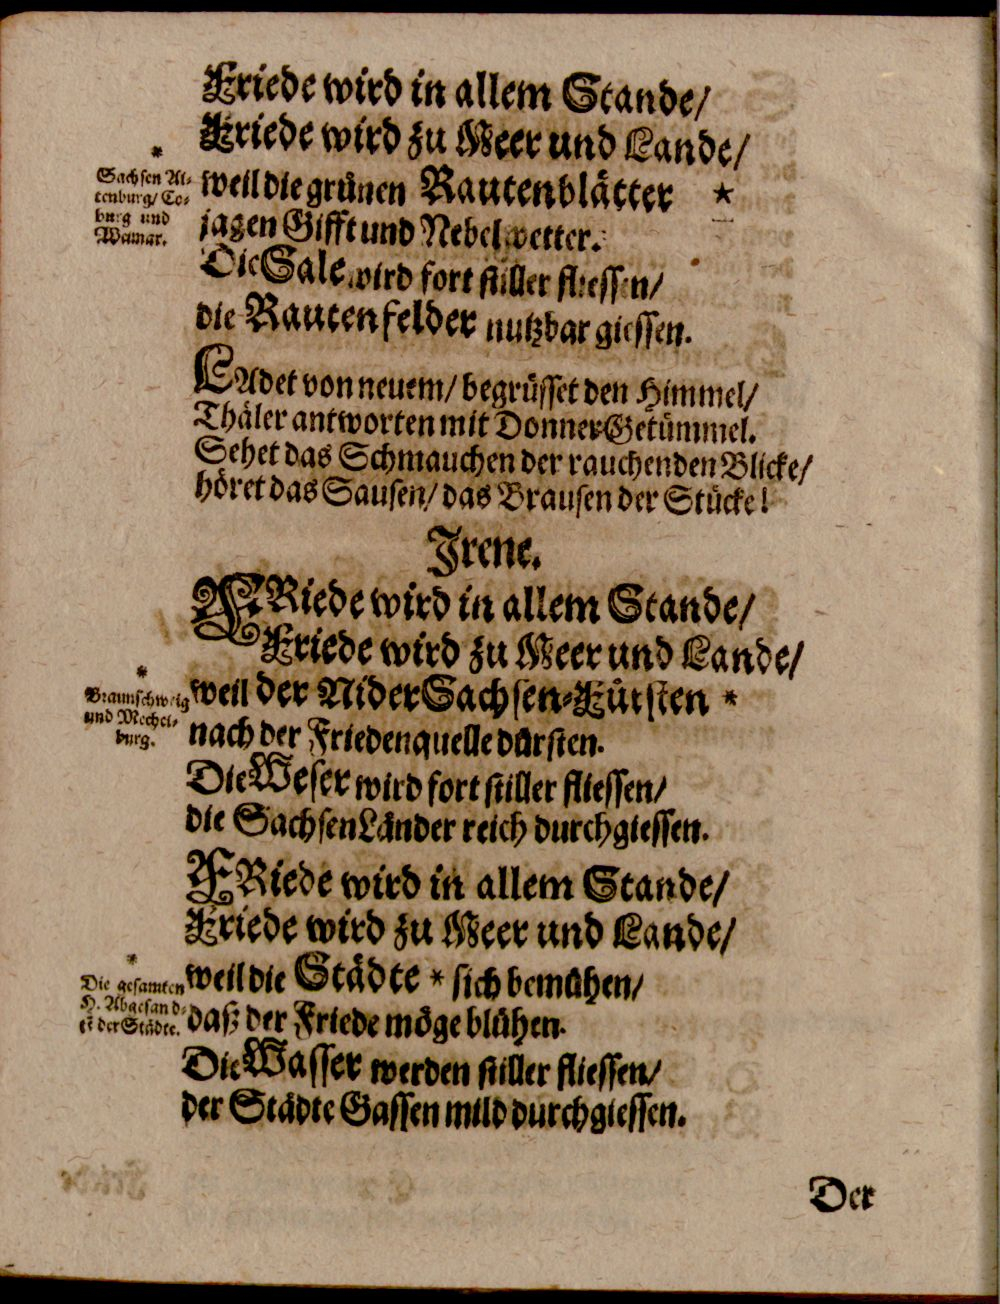 Friede wird in allem Stande/
Friede wird zu Meer und Lande/
*
Sachsen Al-
tenburg/ Co-
burg und
Weimar.
weil die grünen Rautenblätter *
jagen Gifft und Nebelwetter.
Die Sale wird fort stiller fliessen/
die Rautenfelder nutzbar giessen.
LAdet von neuem/ begrüsset den Himmel/
Thäler antworten mit Donner-Getümmel.
Sehet das Schmauchen der rauchenden Blicke/
höret das Sausen/ das Brausen der Stücke!
Irene.
FRiede wird in allem Stande/
Friede wird zu Meer und Lande/
*
Braunschweig
und Mechel-
burg.
weil der NiderSachsen-Fürsten *
nach der Friedenquelle dürsten.
Die Weser wird fort stiller fliessen/
die SachsenLänder reich durchgiessen.
FRiede wird in allem Stande/
Friede wird zu Meer und Lande/
*
Die gesamten
H. Abgesand-
tē der Städte.
weil die Städte * sich bemühen/
daß der Friede möge blühen.
Die Wasser werden stiller fliessen/
der Städte Gassen mild durchgiessen.
Der